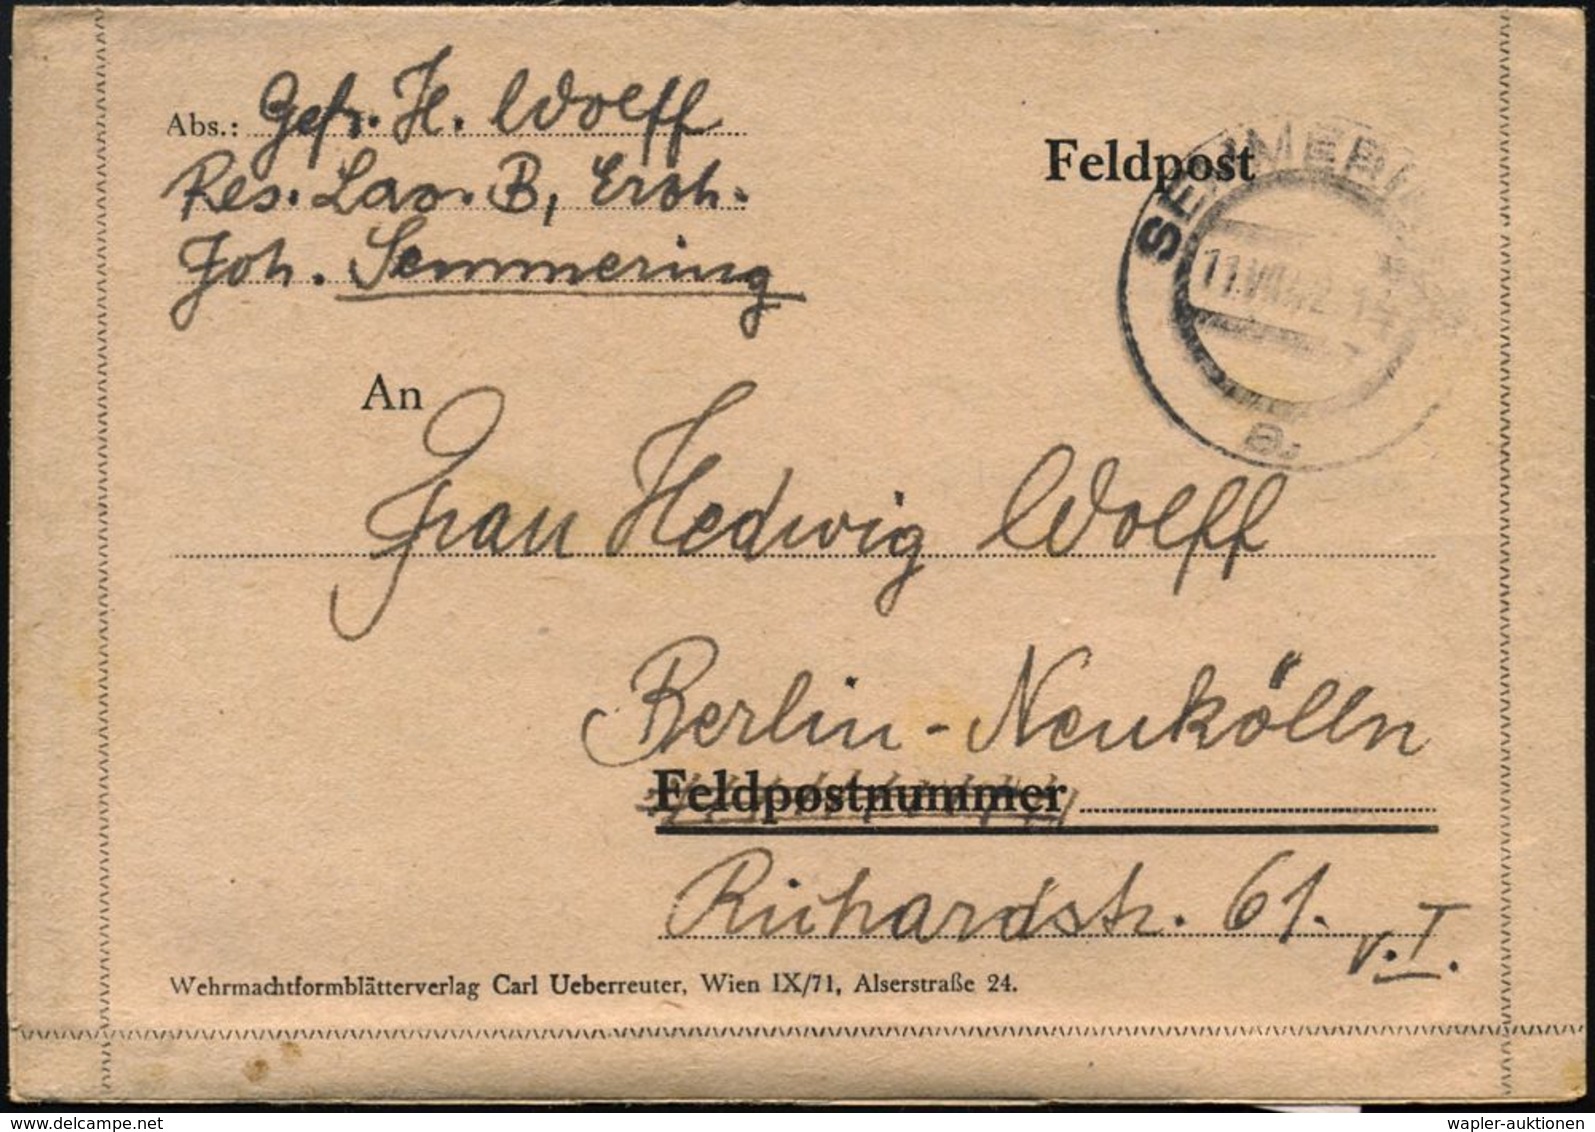 Abs.: Gefr. H. Wolff
Res. Laz. B, Erzh.
Joh. Semmering
Feldpost
SEMMERING
11.VII.42.14
a
An
Frau Hedwig Wolff
Berlin-Neukölln
Feldpostnummer
Richardstr. 61.
v.I.
Wehrmachtformblätterverlag Carl Ueberreuter, Wien IX/71, Alserstraße 24.
www.delcampe.net
wapler-auktionen